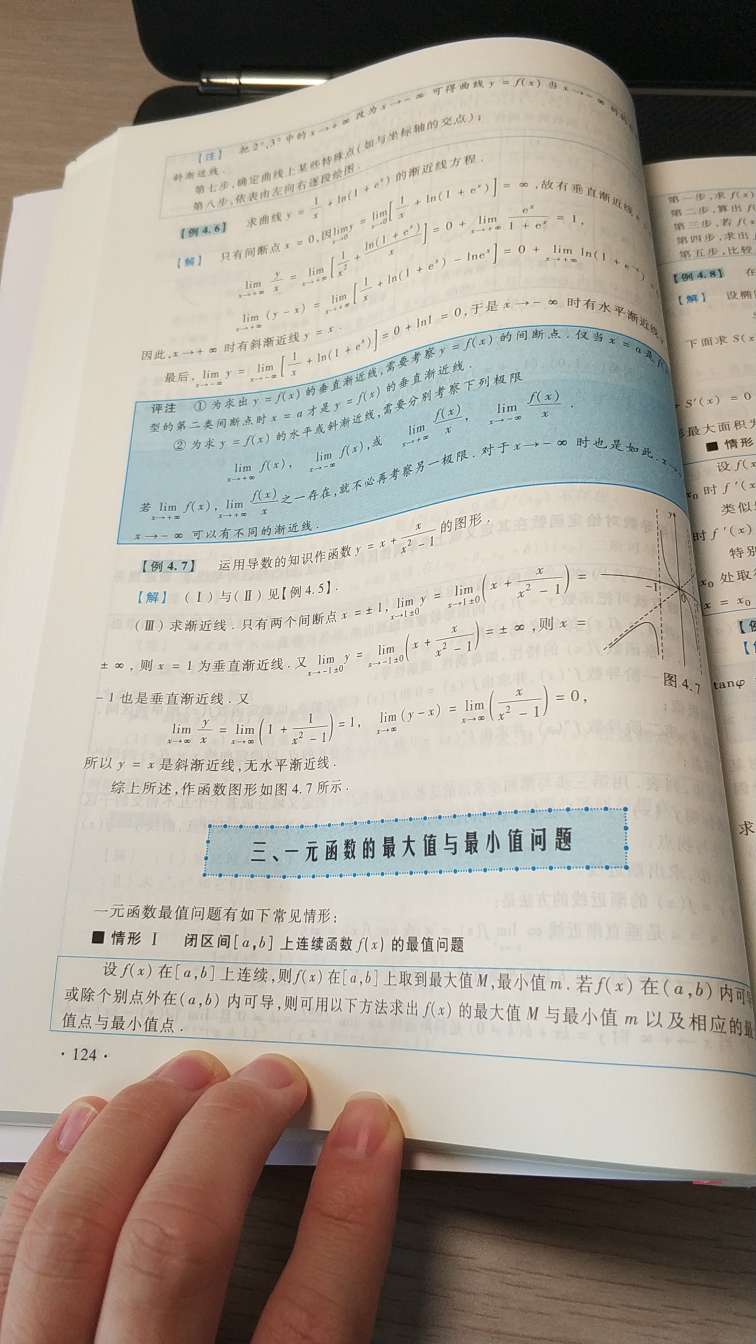 【注】 把2°,3°中的x→+∞改为x→-∞可得曲线y=f(x)当x→-∞
斜渐近线.
第七步,确定曲线上某些特殊点(如与坐标轴的交点);
第八步,依表由左向右逐段绘图.
【例4.6】 求曲线y=1/x+ln(1+e^x)的渐近线方程.
【解】 只有间断点x=0,因lim_{x→0}y=lim_{x→0}[1/x+ln(1+e^x)]=∞,故有垂直渐近线
lim_{x→+∞} y/x=lim_{x→+∞}[1/x²+ln(1+e^x)/x]=0+lim_{x→+∞} e^x/(1+e^x)=1,
lim_{x→+∞}(y-x)=lim_{x→+∞}[1/x+ln(1+e^x)-lne^x]=0+lim_{x→+∞}ln(1+e^{-x})
因此,x→+∞时有斜渐近线y=x.
最后,lim_{x→-∞}y=lim_{x→-∞}[1/x+ln(1+e^x)]=0+ln1=0,于是x→-∞时有水平渐近线
评注 ①为求出y=f(x)的垂直渐近线,需要考察y=f(x)的间断点.仅当x=a是
型的第二类间断点时x=a才是y=f(x)的垂直渐近线.
②为求y=f(x)的水平或斜渐近线,需要分别考察下列极限
lim_{x→+∞}f(x), lim_{x→-∞}f(x),或 lim_{x→+∞}f(x)/x, lim_{x→-∞}f(x)/x.
若lim_{x→+∞}f(x),lim_{x→+∞}f(x)/x之一存在,就不必再考察另一极限.对于x→-∞时也是如此.
x→-∞可以有不同的渐近线.
【例4.7】 运用导数的知识作函数y=x+x/(x²-1)的图形.
【解】 (Ⅰ)与(Ⅱ)见【例4.5】.
(Ⅲ)求渐近线.只有两个间断点x=±1,lim_{x→1±0}y=lim_{x→1±0}(x+x/(x²-1))=
±∞,则x=1为垂直渐近线.又lim_{x→-1±0}y=lim_{x→-1±0}(x+x/(x²-1))=±∞,则x=
-1也是垂直渐近线.又
lim_{x→∞} y/x=lim_{x→∞}(1+1/(x²-1))=1, lim_{x→∞}(y-x)=lim_{x→∞}(x/(x²-1))=0,
所以y=x是斜渐近线,无水平渐近线.
综上所述,作函数图形如图4.7所示.
y
-1
0
图4.7
三、一元函数的最大值与最小值问题
一元函数最值问题有如下常见情形:
■ 情形Ⅰ 闭区间[a,b]上连续函数f(x)的最值问题
设f(x)在[a,b]上连续,则f(x)在[a,b]上取到最大值M,最小值m.若f(x)在(a,b)内可
或除个别点外在(a,b)内可导,则可用以下方法求出f(x)的最大值M与最小值m以及相应的
值点与最小值点.
·124·
第一步,求f(x)
第二步,算出f(
第三步,若f(x
第四步,求出f
第五步,比较
【例4.8】 在
【解】 设椭
下面求S(x
S'(x)=0
最大面积为
■ 情形
设f(x
x₀时f'(x
类似
时f'(x)
特别
x₀处取
x=x₀
tanφ
求